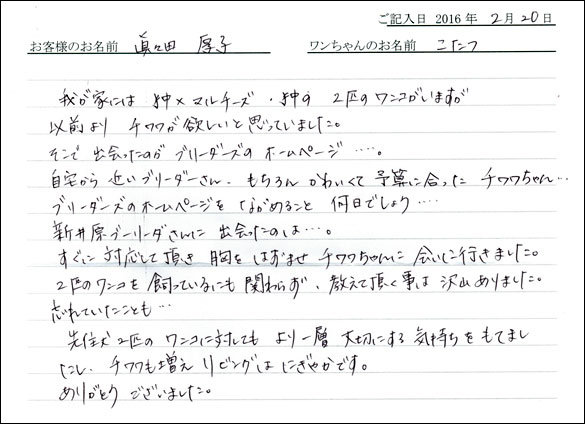 ご記入日 2016 年 2 月 20 日
お客様のお名前 眞々田 厚子 ワンちゃんのお名前 こたつ
我が家には 狆×マルチーズ・狆の 2匹のワンコがいますが
以前より チワワが欲しいと思っていました。
そこで 出会ったのが ブリーダーズの ホームページ ‥‥。
自宅から 近いブリーダーさん、もちろん かわいくて 予算に合った チワワちゃん‥
ブリーダーズのホームページを ながめること 何日でしょう ‥‥
新井原ブーリーダさんに 出会ったのは…。
すぐに 対応して頂き 胸を はずませ チワワちゃんに 会いに行きました。
2匹のワンコを 飼っているにも 関わらず、教えて頂く事は 沢山ありました。
忘れていたことも…
先住犬2匹の ワンコに対しても より一層 大切にする 気持ちを もてまし
たし、チワワも増え リビングは にぎやかです。
ありがとう ございました。